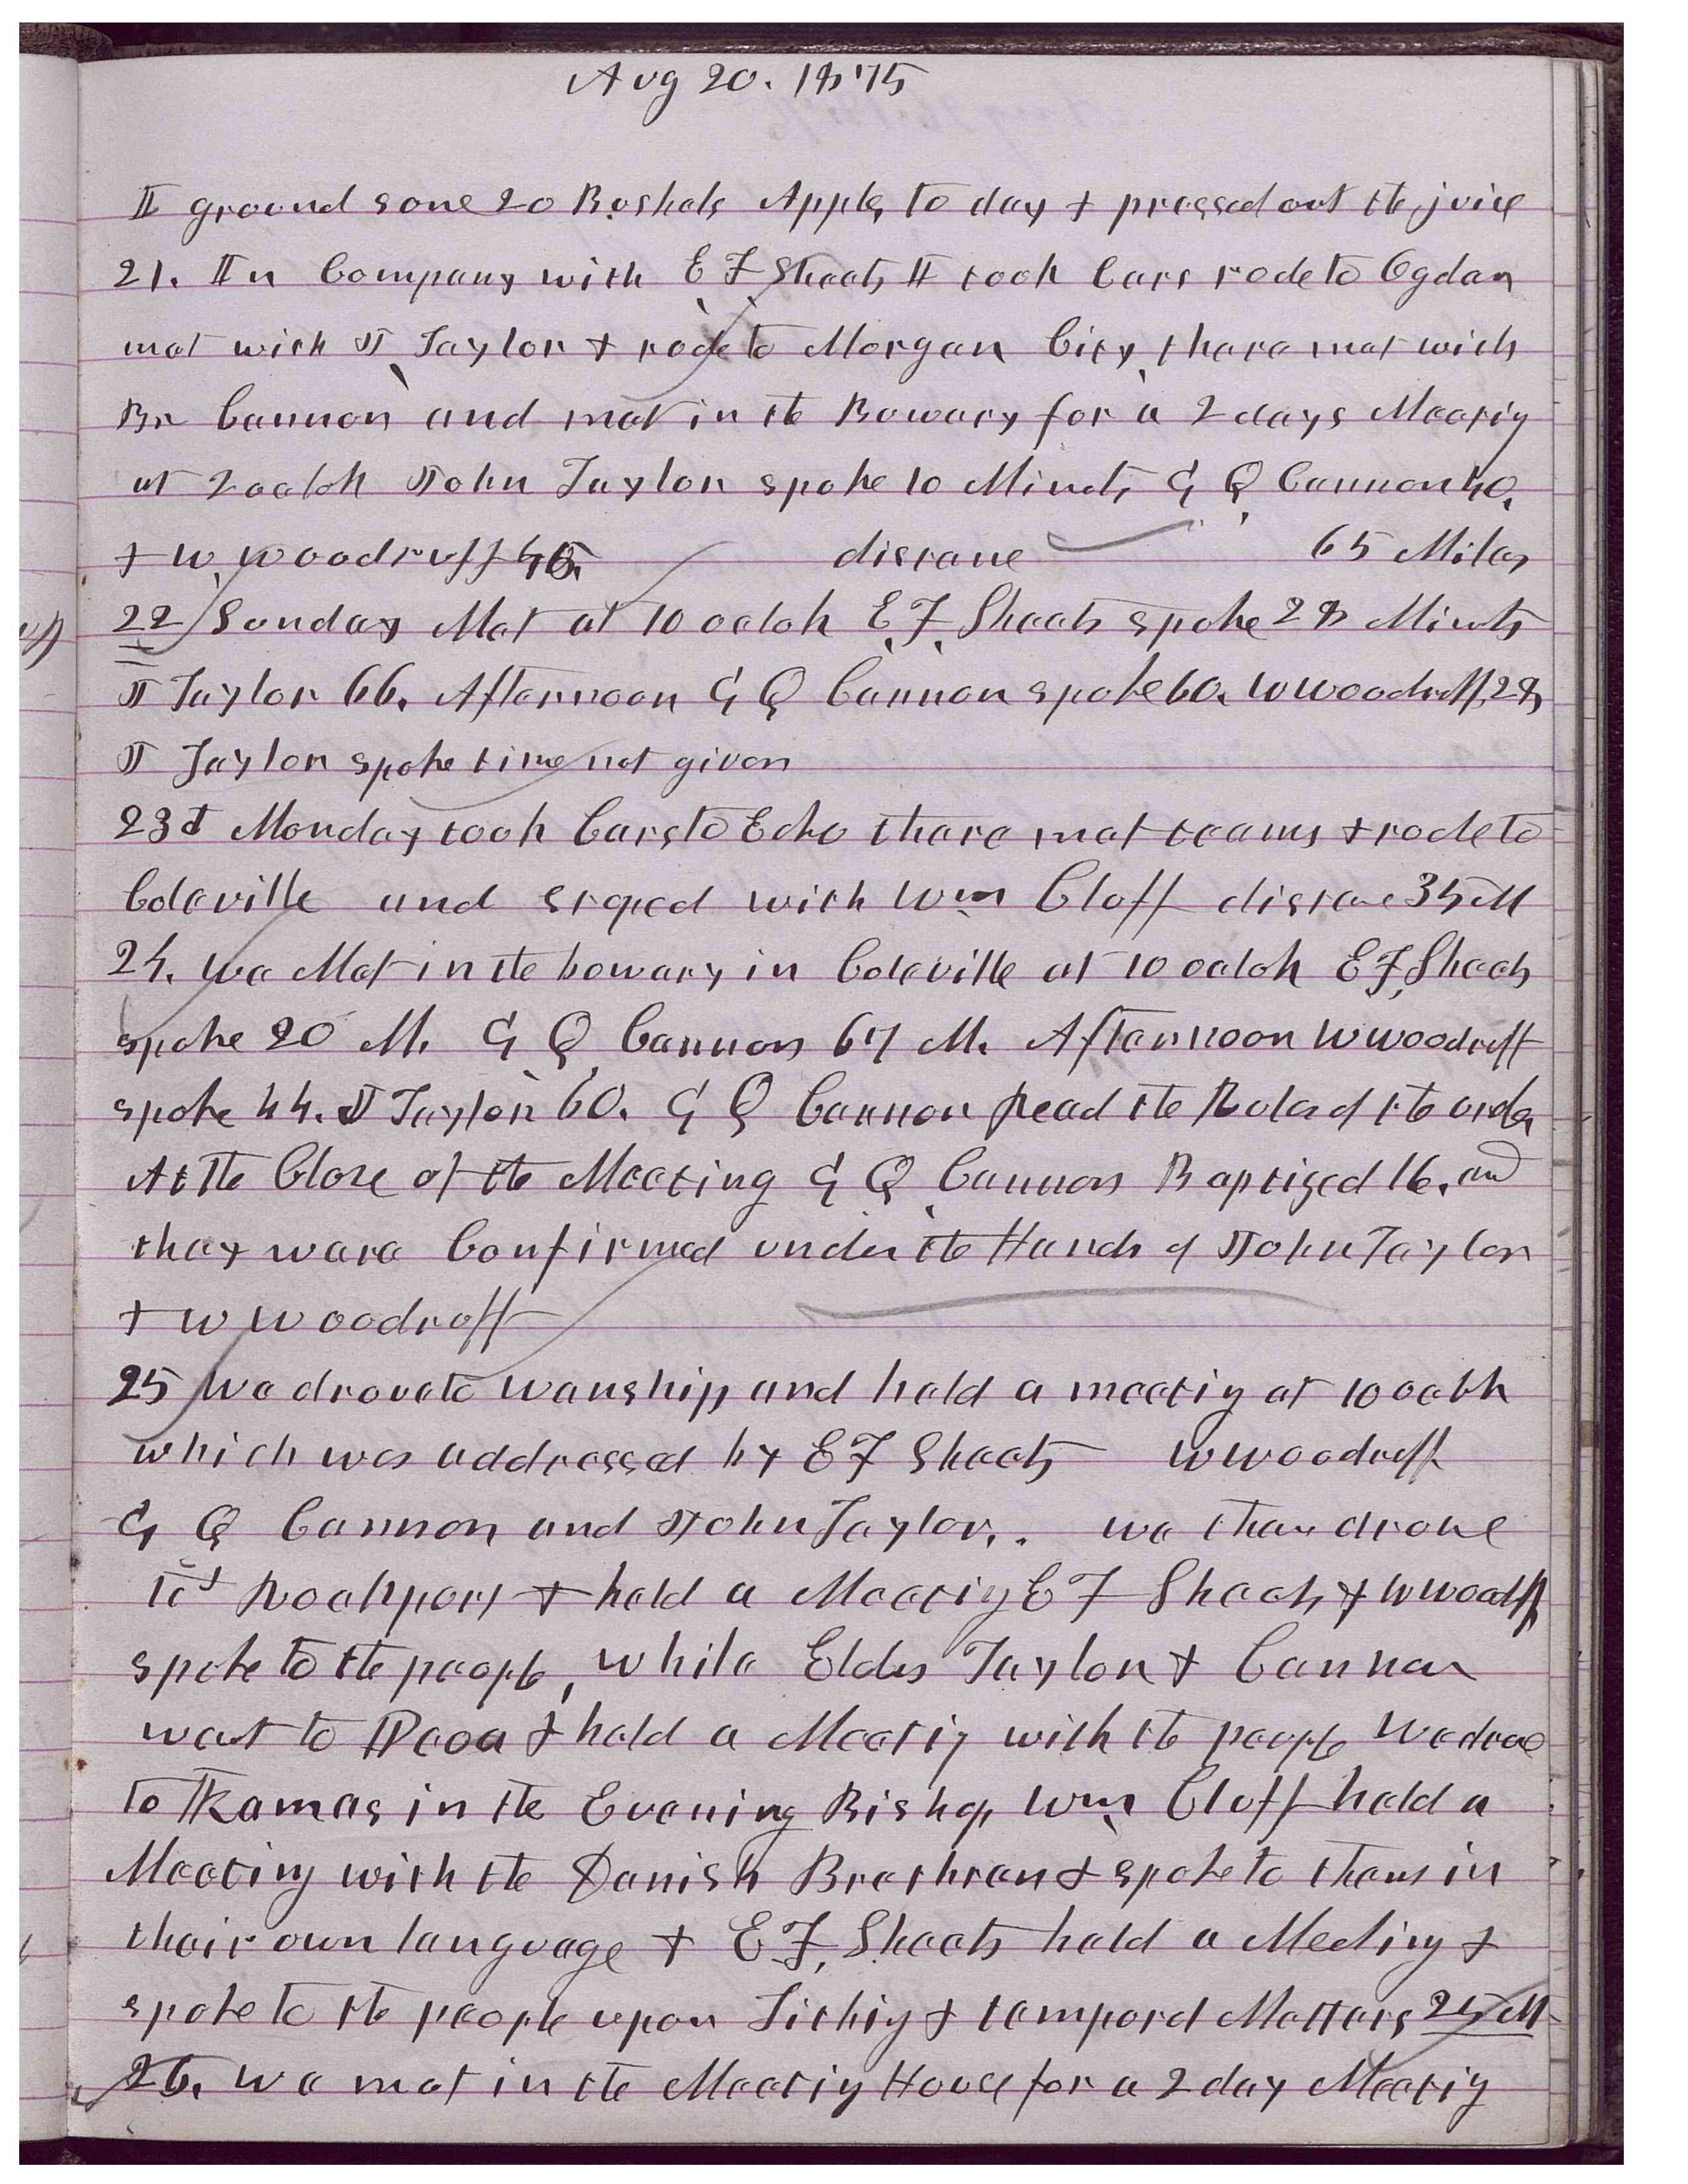 Aug 20. 1875
I ground some 20 Bushels Apples to day & pressed out the juice
21. In Company with E F Sheets I took Cars rode to Ogden
met with J Taylor & rode to Morgan City there met with
Br Cannon and met in the Bowery for a 2 days Meetig
at 2 oclok John Taylor spoke 10 Minuts G Q Cannon 40.
& W. Woodruff 45. distance 65 Miles
22 Sunday Met at 10 oclok E. F. Sheets spoke 28 Minuts
J Taylor 66. Afternoon G Q Cannon spoke 60. W Woodruff 28
J Taylor spoke time not given
23d Monday took Cars to Echo there met teams & rode to
Coleville and stoped with Wm Cluff distance 35 M
24. We Met in the bowery in Coleville at 10 oclok E F Sheets
spoke 20 M. G Q Cannon 67 M. Afternoon W Woodruff
spoke 44. J Taylor 60. G Q Cannon Read the Rules of the order
At the Close of the Meeting G Q Cannon Baptized 16. and
they were Confirmed under the Hands of John Taylor
& W Woodruff
25 We drove to Wanship and held a meetig at 10 oclk
which was addressed by E F Sheets W Woodruff
G Q Cannon and John Taylor. we then drove
to Rockport & held a Meetig E F Sheets & W Woodruff
spoke to the people, while Elders Taylor & Cannon
went to Peoa & held a Meetig with the people We drove
to Kamas in the Evening Bishop Wm Cluff held a
Meeting with the Danish Brethren & spoke to them in
their own language & E F, Sheets held a Meeting &
spoke to the people upon Tithig & temporel Matters 25 M
26. We met in the Meetig House for a 2 day Meetig